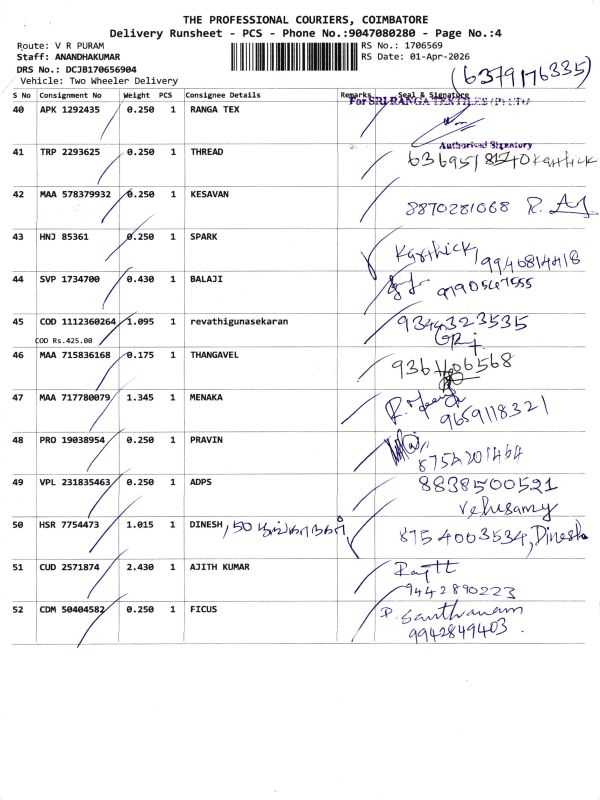 THE PROFESSIONAL COURIERS, COIMBATORE
Delivery Runsheet - PCS - Phone No.:9047080280 - Page No.:4
Route: V R PURAM RS No.: 1706569
Staff: ANANDHAKUMAR RS Date: 01-Apr-2026
DRS No.: DCJB170656904
Vehicle: Two Wheeler Delivery
(6379176335)
S No Consignment No Weight PCS Consignee Details Remarks Seal & Signature
For SRI RANGA TEXTILES (P) LTD
40 APK 1292435 0.250 1 RANGA TEX
Authorised Signatory
41 TRP 2293625 0.250 1 THREAD Karthick
42 MAA 578379932 0.250 1 KESAVAN 8870281068
43 HNJ 85361 0.250 1 SPARK Karthick
44 SVP 1734700 0.430 1 BALAJI
45 COD 1112360264 1.095 1 revathigunasekaran 9344323535
COD Rs.425.00
46 MAA 715836168 0.175 1 THANGAVEL
47 MAA 717780079 1.345 1 MENAKA 9659118321
48 PRO 19038954 0.250 1 PRAVIN 8754201464
49 VPL 231835463 0.250 1 ADPS 8838500521
Velusamy
50 HSR 7754473 1.015 1 DINESH 8754003534, Dinesh
51 CUD 2571874 2.430 1 AJITH KUMAR
9442890223
52 CDM 50404582 0.250 1 FICUS P. Santhanam
9942849403.